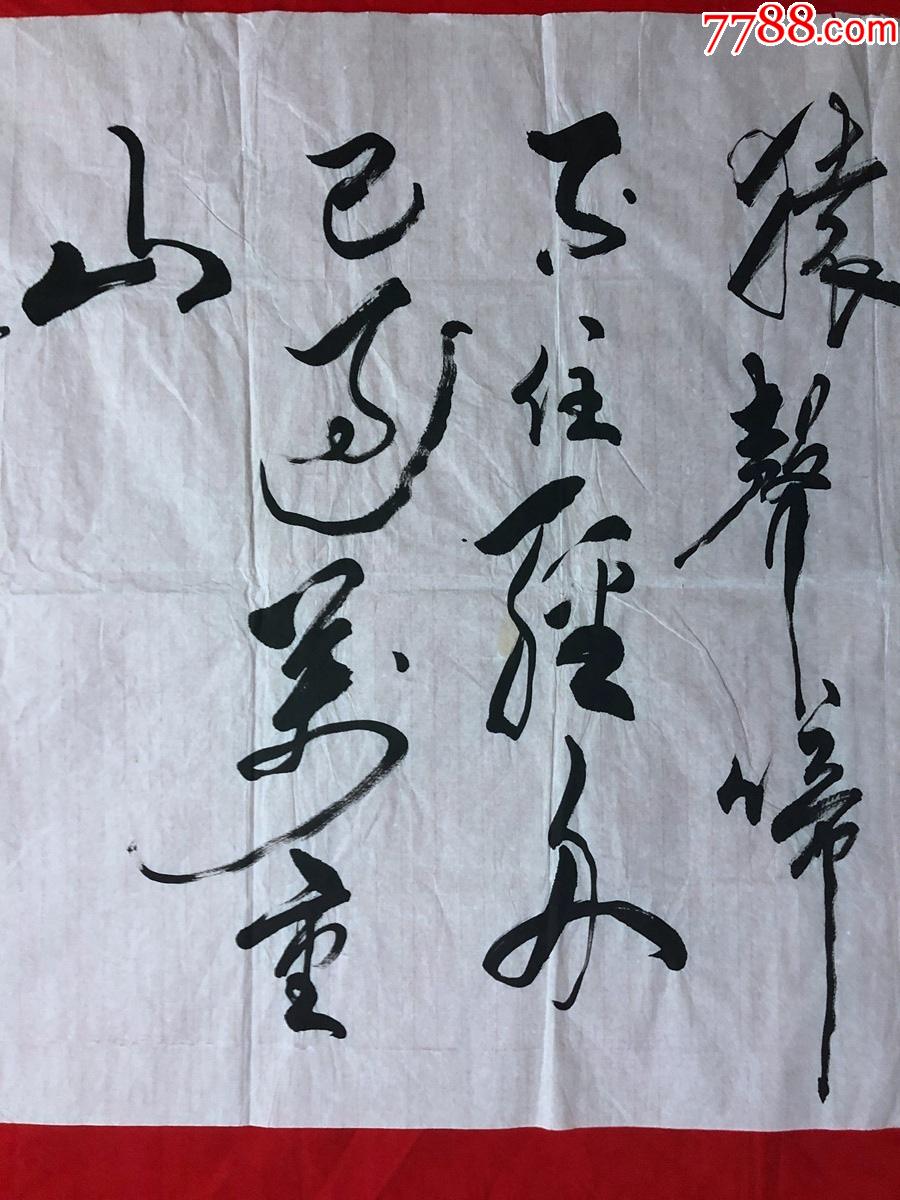 7788.com
猿聲啼
不住輕舟
已過萬重
山